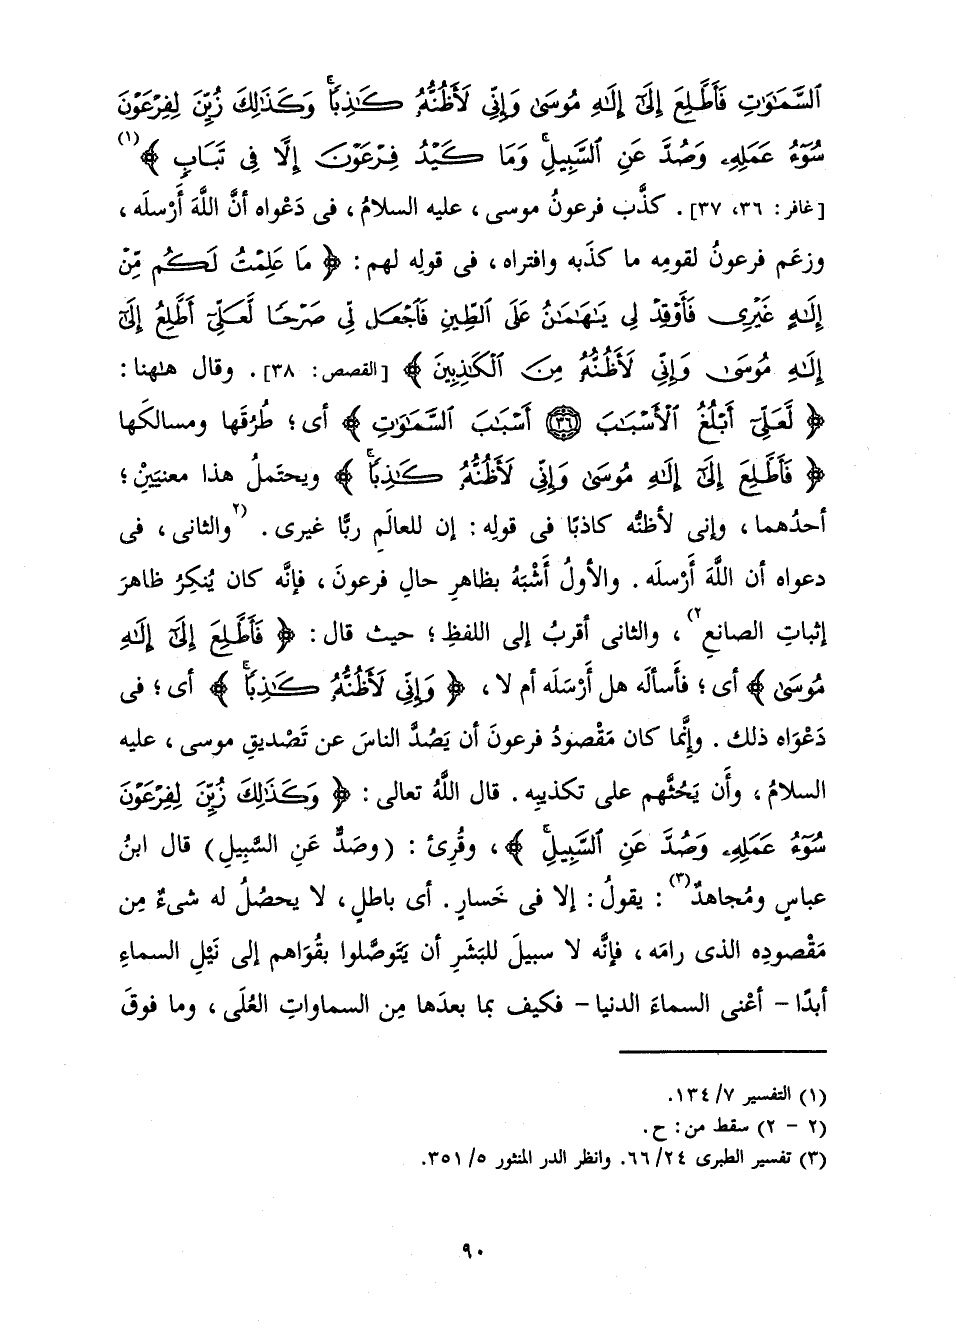 ٱلسَّمَٰوَٰتِ فَأَطَّلِعَ إِلَىٰٓ إِلَٰهِ مُوسَىٰ وَإِنِّي لَأَظُنُّهُۥ كَٰذِبًاۚ وَكَذَٰلِكَ زُيِّنَ لِفِرْعَوْنَ
سُوٓءُ عَمَلِهِۦ وَصُدَّ عَنِ ٱلسَّبِيلِۚ وَمَا كَيْدُ فِرْعَوْنَ إِلَّا فِى تَبَابٍ ﴾(١)
[غافر: ٣٦، ٣٧]. كذَّب فرعونُ موسى، عليه السلامُ، فى دَعْواه أنَّ اللَّهَ أَرْسلَه،
وزعَم فرعونُ لقومِه ما كذَبه وافتراه، فى قولِه لهم: ﴿ مَا عَلِمْتُ لَكُم مِّنْ
إِلَٰهٍ غَيْرِى فَأَوْقِدْ لِى يَٰهَٰمَٰنُ عَلَى ٱلطِّينِ فَٱجْعَل لِّى صَرْحًا لَّعَلِّىٓ أَطَّلِعُ إِلَىٰٓ
إِلَٰهِ مُوسَىٰ وَإِنِّى لَأَظُنُّهُۥ مِنَ ٱلْكَٰذِبِينَ ﴾ [القصص: ٣٨]. وقال هٰهنا:
﴿ لَّعَلِّىٓ أَبْلُغُ ٱلْأَسْبَٰبَ ٣٦ أَسْبَٰبَ ٱلسَّمَٰوَٰتِ ﴾ أى؛ طُرُقَها ومسالكَها
﴿ فَأَطَّلِعَ إِلَىٰٓ إِلَٰهِ مُوسَىٰ وَإِنِّى لَأَظُنُّهُۥ كَٰذِبًاۚ ﴾ ويحتَملُ هذا معنيَيْنِ؛
أحدُهما، وإنى لأظنُّه كاذبًا فى قولِه: إن للعالَمِ ربًّا غيرى. (٢والثانى، فى
دعواه أن اللَّهَ أَرْسلَه. والأولُ أَشْبَهُ بظاهرِ حالِ فرعونَ، فإنَّه كان يُنكِرُ ظاهرَ
إثباتِ الصانعِ٢)، والثانى أقربُ إلى اللفظِ؛ حيث قال: ﴿ فَأَطَّلِعَ إِلَىٰٓ إِلَٰهِ
مُوسَىٰ ﴾ أى؛ فأَسألَه هل أَرْسَلَه أم لا، ﴿ وَإِنِّى لَأَظُنُّهُۥ كَٰذِبًاۚ ﴾ أى؛ فى
دَعْوَاه ذلك. وإنَّما كان مَقْصودُ فرعونَ أن يَصُدَّ الناسَ عن تَصْديقِ موسى، عليه
السلامُ، وأَن يَحُثَّهم على تكذيبِه. قال اللَّهُ تعالى: ﴿ وَكَذَٰلِكَ زُيِّنَ لِفِرْعَوْنَ
سُوٓءُ عَمَلِهِۦ وَصُدَّ عَنِ ٱلسَّبِيلِۚ ﴾، وقُرِئ: (وصَدَّ عَنِ السَّبِيلِ) قال ابنُ
عباسٍ ومُجاهدٌ(٣): يقولُ: إلا فى خَسارٍ. أى باطلٍ، لا يحصُلُ له شىءٌ مِن
مَقْصودِه الذى رامَه، فإنَّه لا سبيلَ للبَشَرِ أن يَتَوصَّلوا بقُوَاهم إلى نَيْلِ السماءِ
أبدًا - أعْنى السماءَ الدنيا - فكيف بما بعدَها مِن السماواتِ العُلَى، وما فوقَ
(١) التفسير ٧/ ١٣٤.
(٢ - ٢) سقط من: ح.
(٣) تفسير الطبرى ٢٤/ ٦٦. وانظر الدر المنثور ٥/ ٣٥١.
٩٠